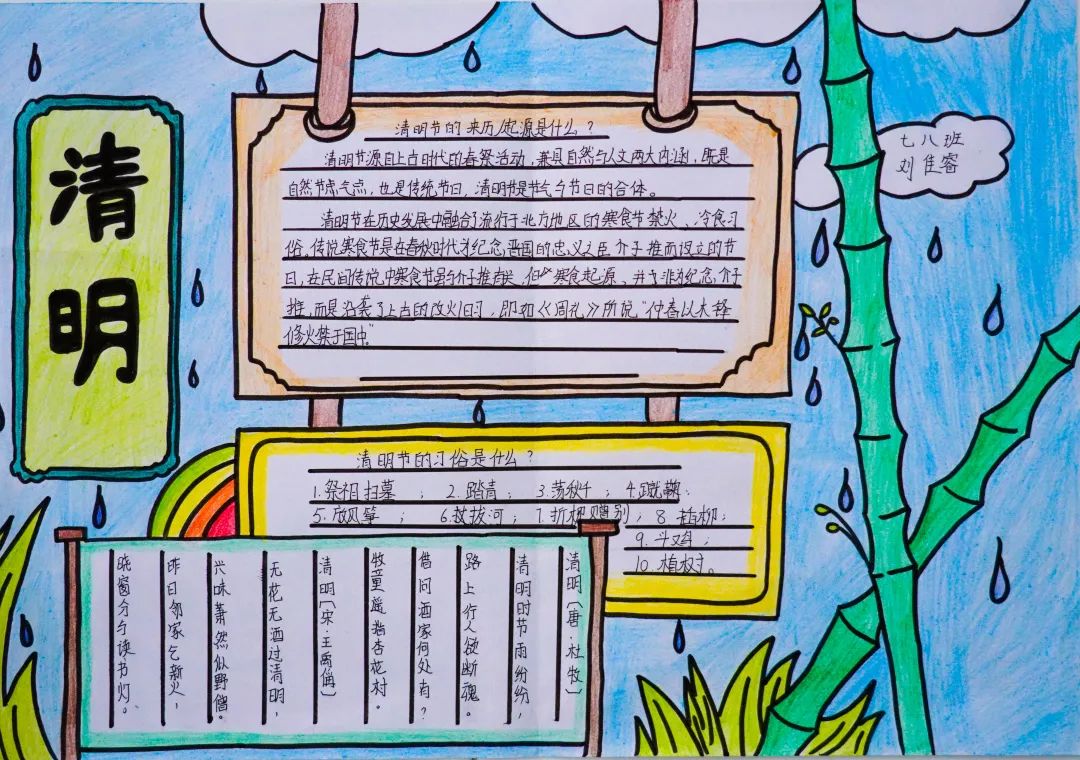 清明
七八班
刘隹睿
清明节的来历/起源是什么？
清明节源自上古时代的春祭活动，兼具自然与人文两大内涵，既是
自然节气点，也是传统节日，清明节是节气与节日的合体。
清明节在历史发展中融合了流行于北方地区的寒食节禁火、冷食习
俗。传说寒食节是在春秋时代为纪念晋国的忠义之臣介子推而设立的节
日，在民间传说中寒食节虽与介子推有关，但“寒食起源，并非为纪念介子
推，而是沿袭了上古的改火旧习，即如《周礼》所说“仲春以木铎
修火禁于国中”
清明节的习俗是什么？
1.祭祖扫墓； 2.踏青； 3.荡秋千； 4.蹴鞠；
5.放风筝； 6.拔河； 7.折柳赠别； 8.插柳；
9.斗鸡；
10.植树。
清明〔唐·杜牧〕
清明时节雨纷纷，
路上行人欲断魂。
借问酒家何处有？
牧童遥指杏花村。
清明〔宋·王禹偁〕
无花无酒过清明，
兴味萧然似野僧。
昨日邻家乞新火，
晓窗分与读书灯。